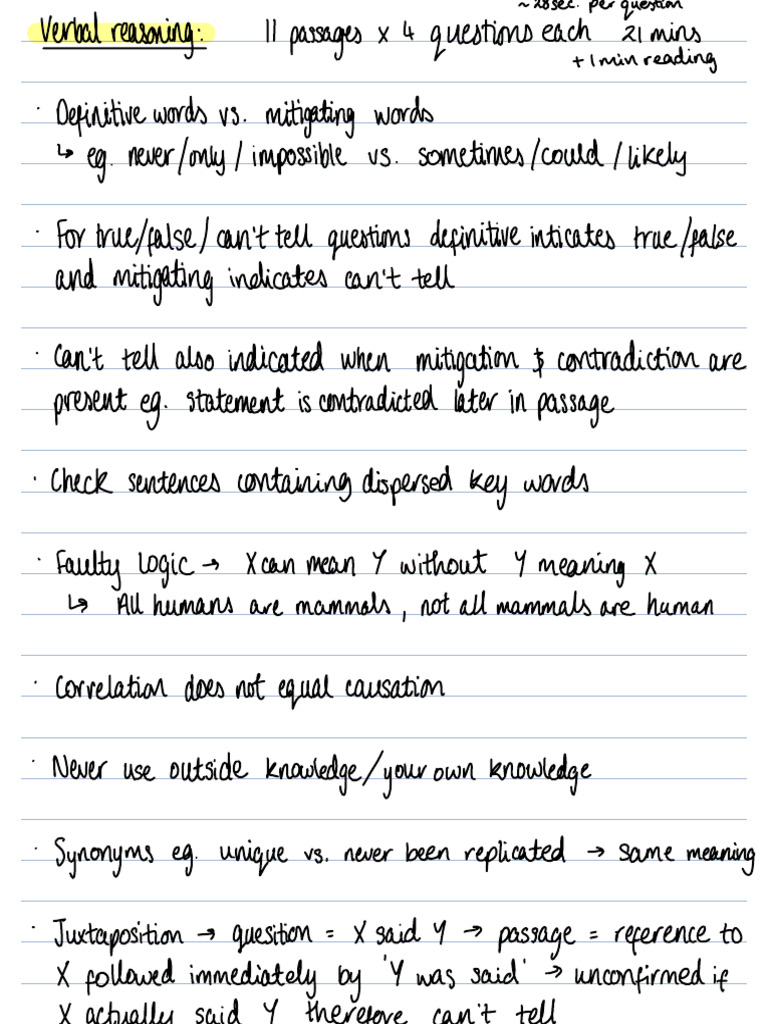 ~28sec. per question
Verbal reasoning: 11 passages x 4 questions each 21 mins
+ 1 min reading
· Definitive words vs. mitigating words
↳ eg. never/only/impossible vs. sometimes/could/likely
· For true/false/can't tell questions definitive inticates true/false
and mitigating indicates can't tell
· Can't tell also indicated when mitigation & contradiction are
present eg. statement is contradicted later in passage
· Check sentences containing dispersed key words
· Faulty logic → X can mean Y without Y meaning X
↳ All humans are mammals, not all mammals are human
· Correlation does not equal causation
· Never use outside knowledge/your own knowledge
· Synonyms eg. unique vs. never been replicated → same meaning
· Juxtaposition → quesition = X said Y → passage = reference to
X followed immediately by 'Y was said' → unconfirmed if
X actually said Y therefore can't tell